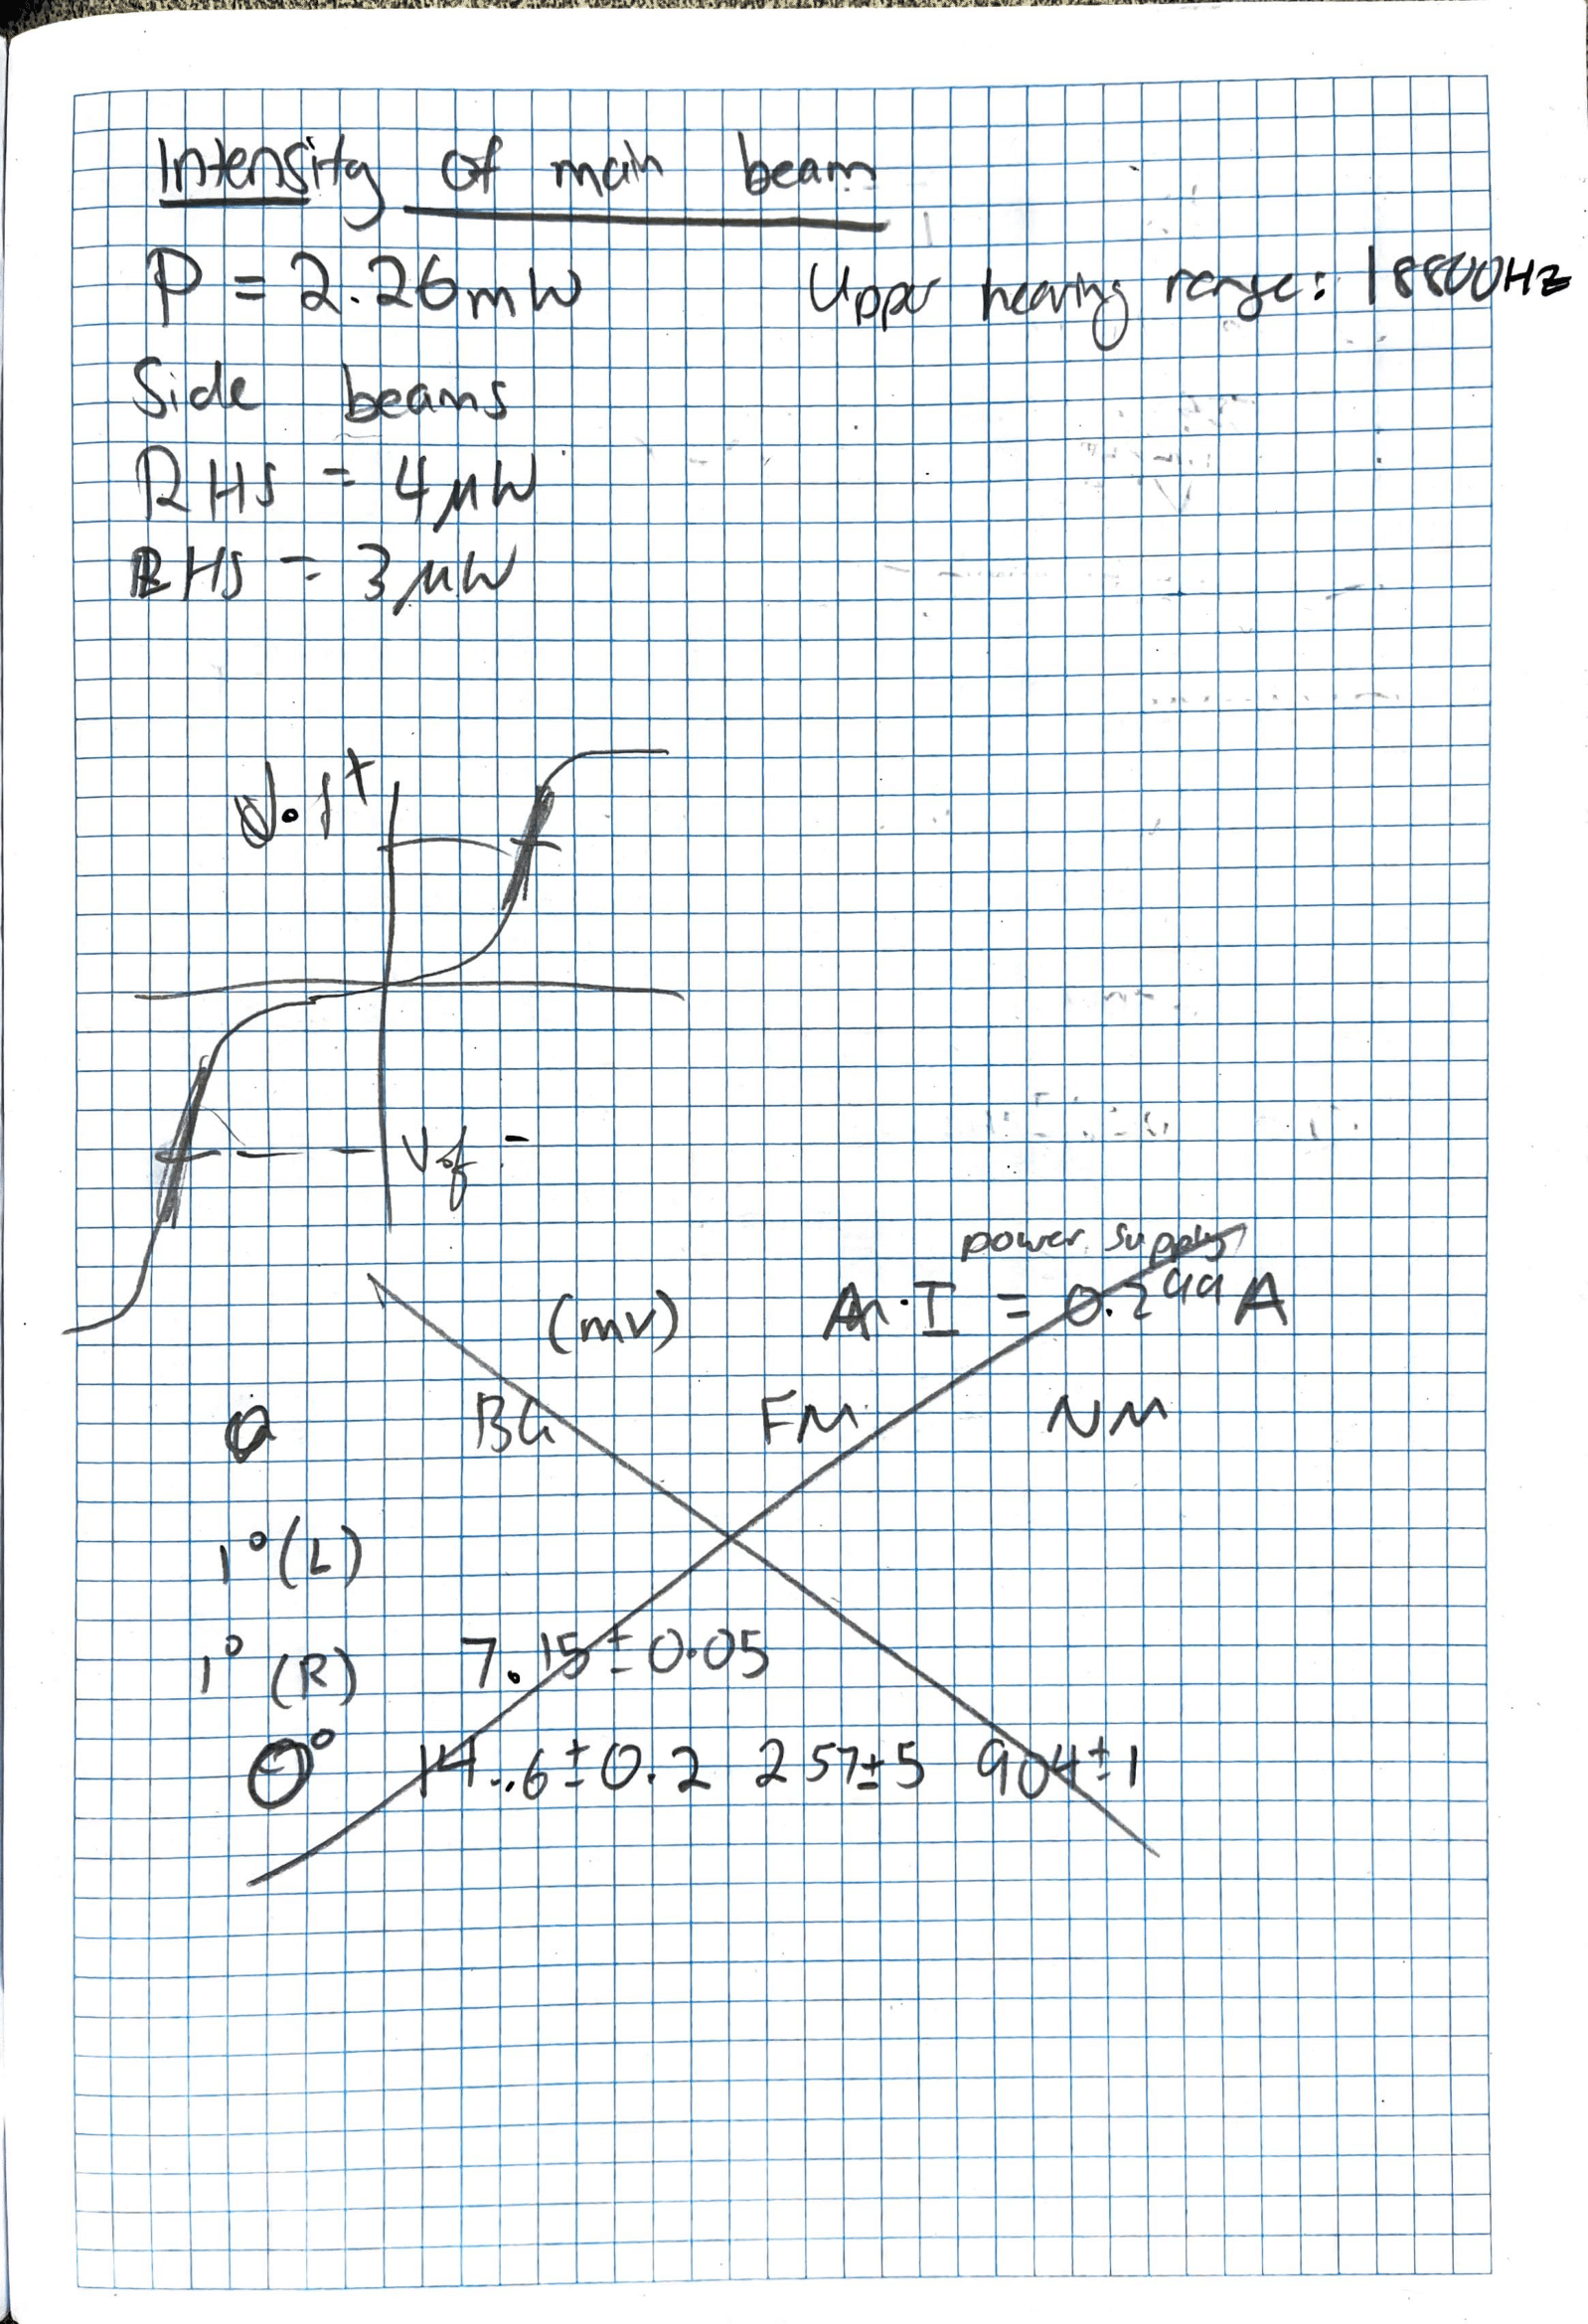 Intensity of main beam
P = 2.26mW
Upper hearing range: 18800Hz
Side beams
RHS = 4μW
RHS = 3μW
power supply
(mV)
I = 0.299A
BG FM NM
1°(L)
1° (R) 7.15±0.05
0° 14.6±0.2 257±5 904±1